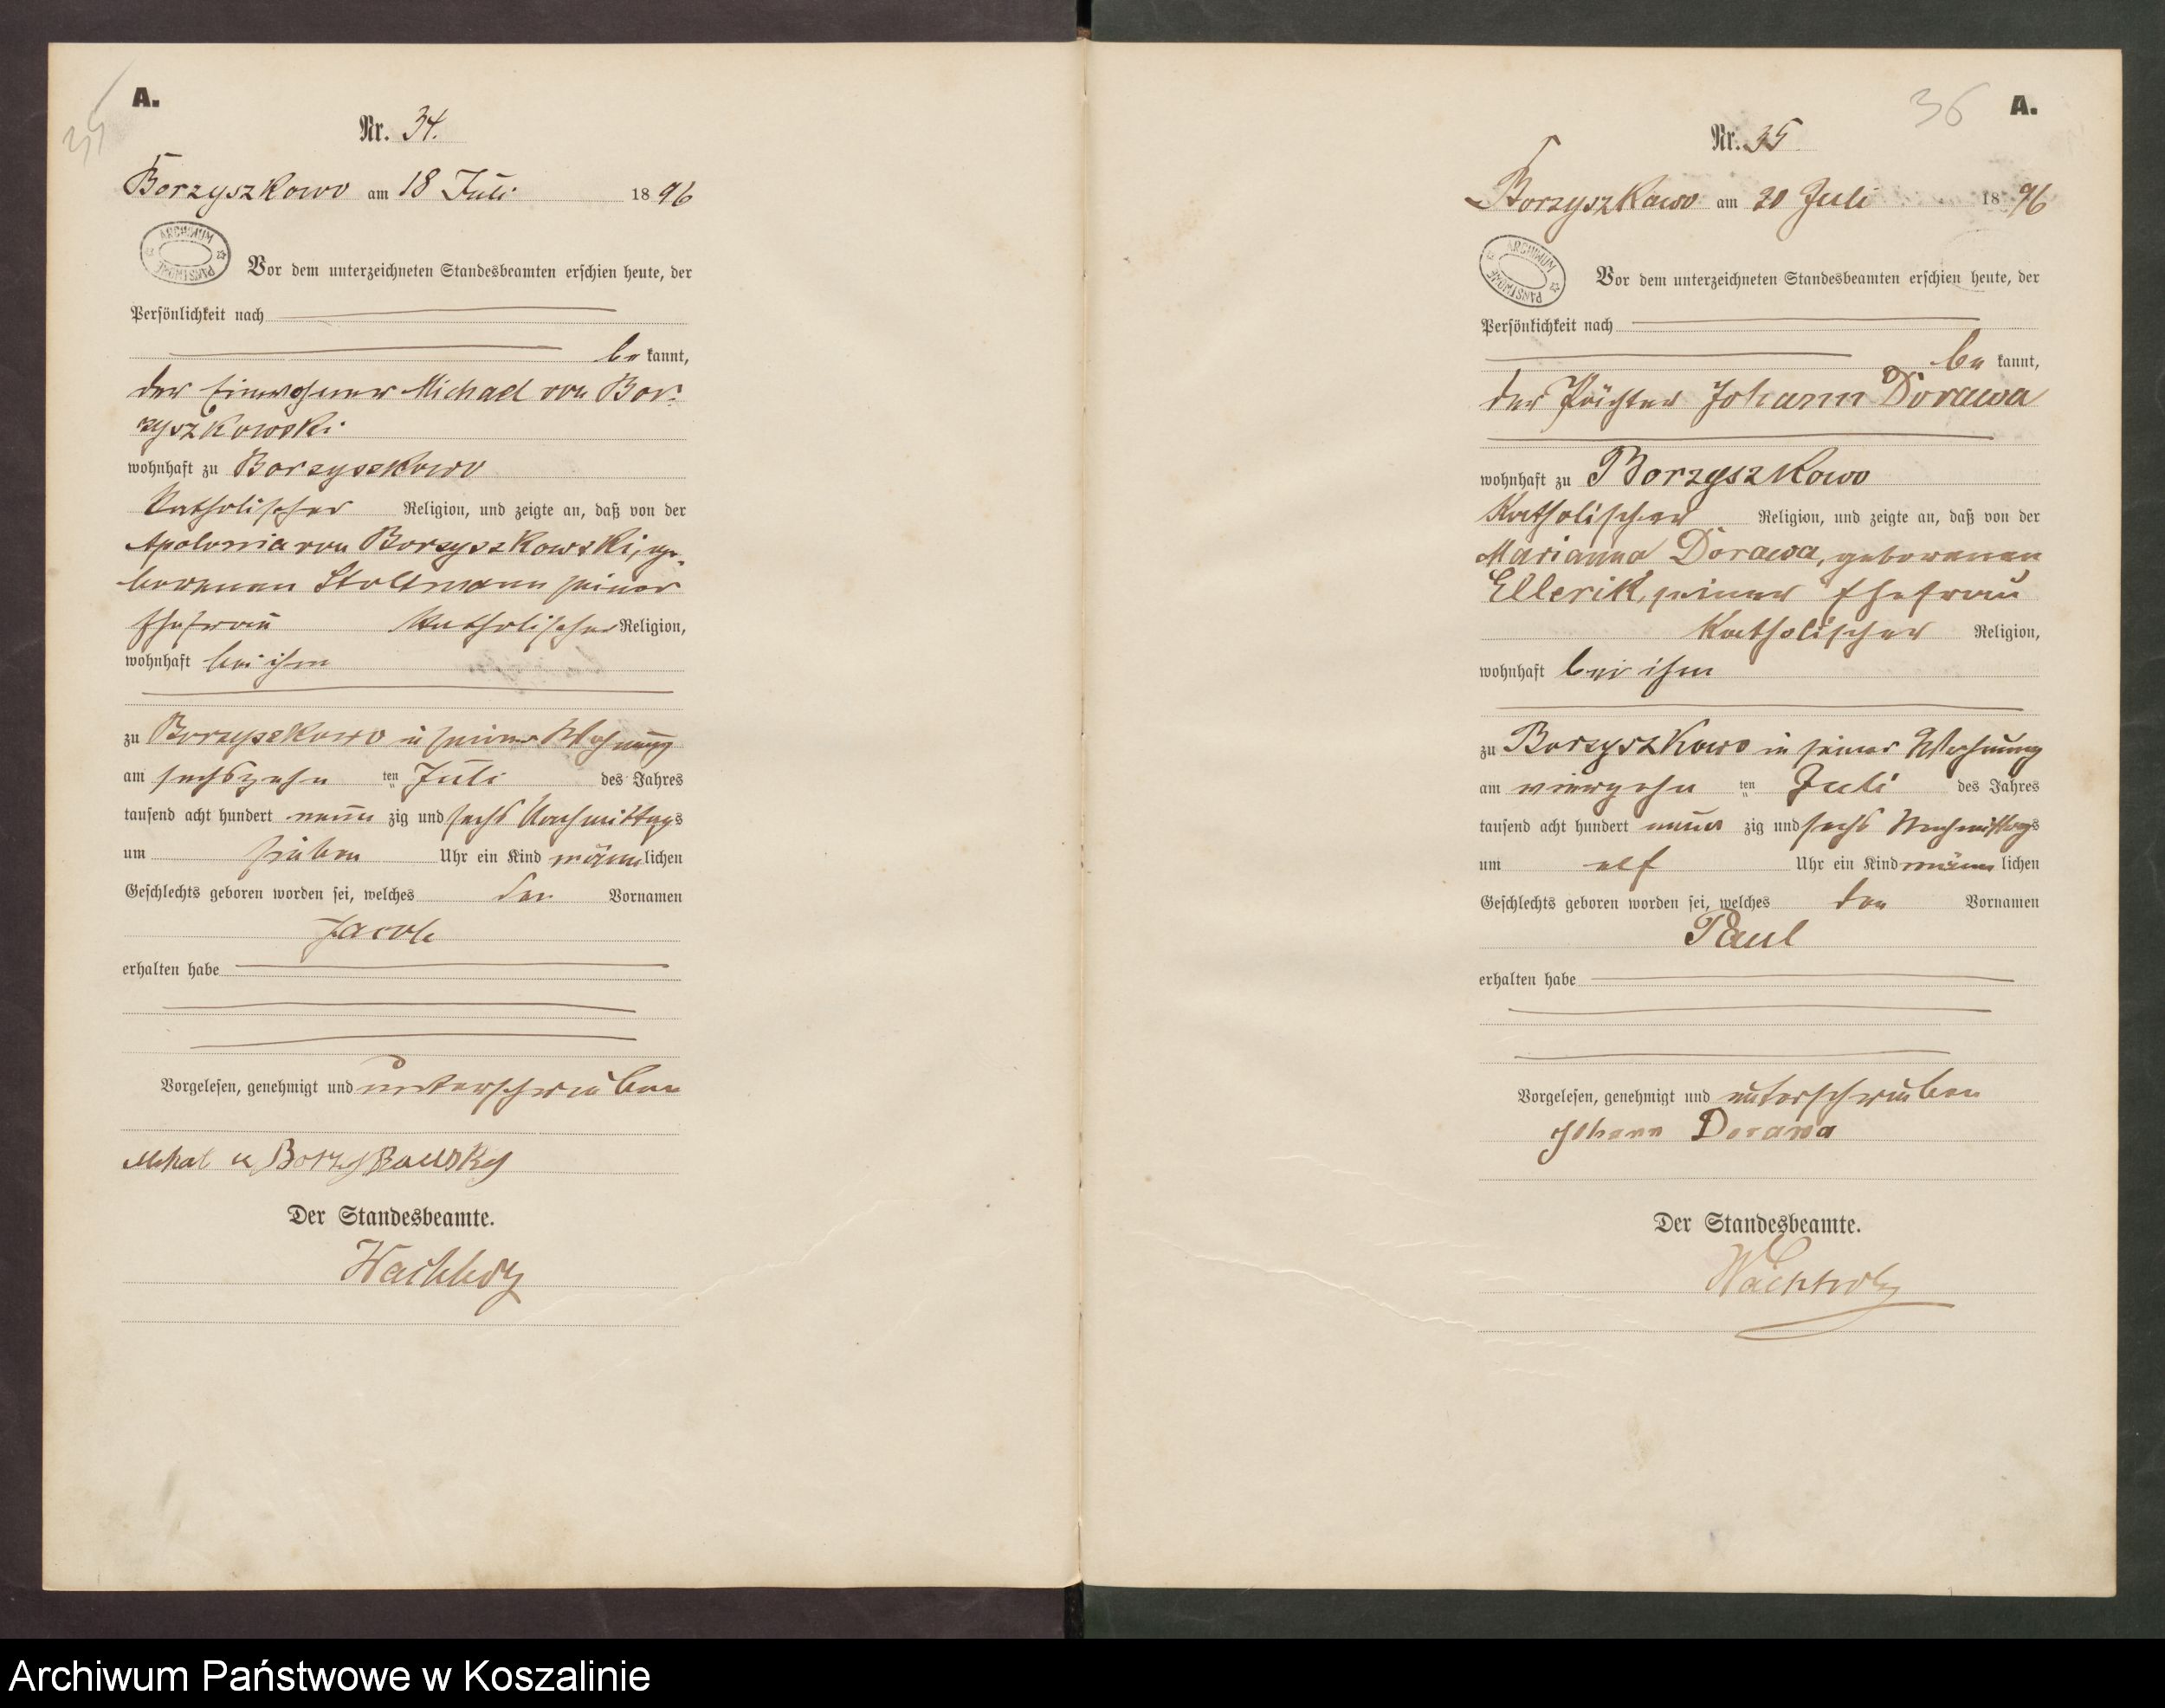 A.
35
Nr. 34.
Borzyszkowo am 18 Juli 1896
ARCHIWUM PAŃSTWOWE
Vor dem unterzeichneten Standesbeamten erschien heute, der
Persönlichkeit nach
be kannt,
der Einwohner Michael von Bor-
zyszkowski
wohnhaft zu Borzyszkowo
katholischer Religion, und zeigte an, daß von der
Apolonia von Borzyszkowski, ge-
borenen Stoltmann seiner
Ehefrau katholischer Religion,
wohnhaft bei ihm
zu Borzyszkowo in seiner Wohnung
am sechszehn ten Juli des Jahres
tausend acht hundert neun zig und sechs Nachmittags
um sieben Uhr ein Kind männlichen
Geschlechts geboren worden sei, welches den Vornamen
Jacob
erhalten habe
Vorgelesen, genehmigt und unterschrieben
Der Standesbeamte.
Wachholz
36
A.
Nr. 35
Borzyszkowo am 20 Juli 1896
ARCHIWUM PAŃSTWOWE
Vor dem unterzeichneten Standesbeamten erschien heute, der
Persönlichkeit nach
be kannt,
der Pächter Johann Dorawa
wohnhaft zu Borzyszkowo
katholischer Religion, und zeigte an, daß von der
Marianna Dorawa, geborenen
Ellerik, seiner Ehefrau
katholischer Religion,
wohnhaft bei ihm
zu Borzyszkowo in seiner Wohnung
am vierzehn ten Juli des Jahres
tausend acht hundert neun zig und sechs Nachmittags
um elf Uhr ein Kind männlichen
Geschlechts geboren worden sei, welches den Vornamen
Paul
erhalten habe
Vorgelesen, genehmigt und unterschrieben
Johann Dorawa
Der Standesbeamte.
Wachholz
Archiwum Państwowe w Koszalinie